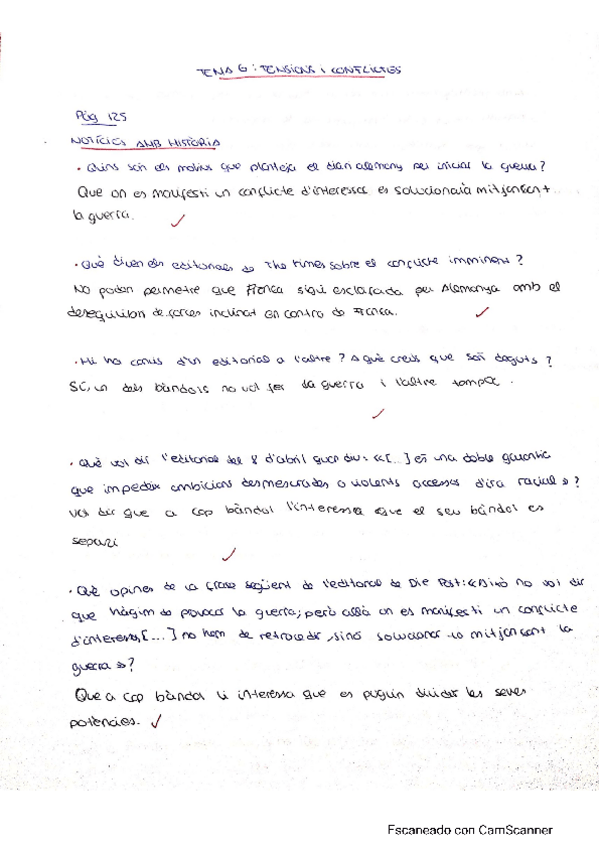 TEMA 6: TENSIONS I CONFLICTES
Pàg 125
NOTÍCIES AMB HISTÒRIA
· Quins són els motius que planteja el diari alemany per iniciar la guerra?
Que on es manifesti un conflicte d'interessos es solucionarà mitjansant
la guerra.
· Què diuen els editorials de The times sobre el conflicte imminent?
No poden permetre que França sigui esclafada per Alemanya amb el
desequilibri de forces inclinat en contra de França.
· Hi ha canvis d'un editorial a l'altre? A què creus que són deguts?
Sí, un dels bàndols no vol fer la guerra i l'altre tampoc.
· Què vol dir l'editorial del 8 d'abril quan diu: «[...] és una doble garantia
que impedeix ambicions desmesurades o violents accessos d'ira racial»?
Vol dir que a cap bàndol l'interessa que el seu bàndol es
separi
· Què opines de la frase següent de l'editorial de Die Post: «Això no vol dir
que hàgim de provocar la guerra; però allà on es manifesti un conflicte
d'interessos, [...] no hem de retrocedir, sinó solucionar-lo mitjansant la
guerra»?
Que a cap bàndol li interessa que es puguin dividir les seves
potències.
Escaneado con CamScanner